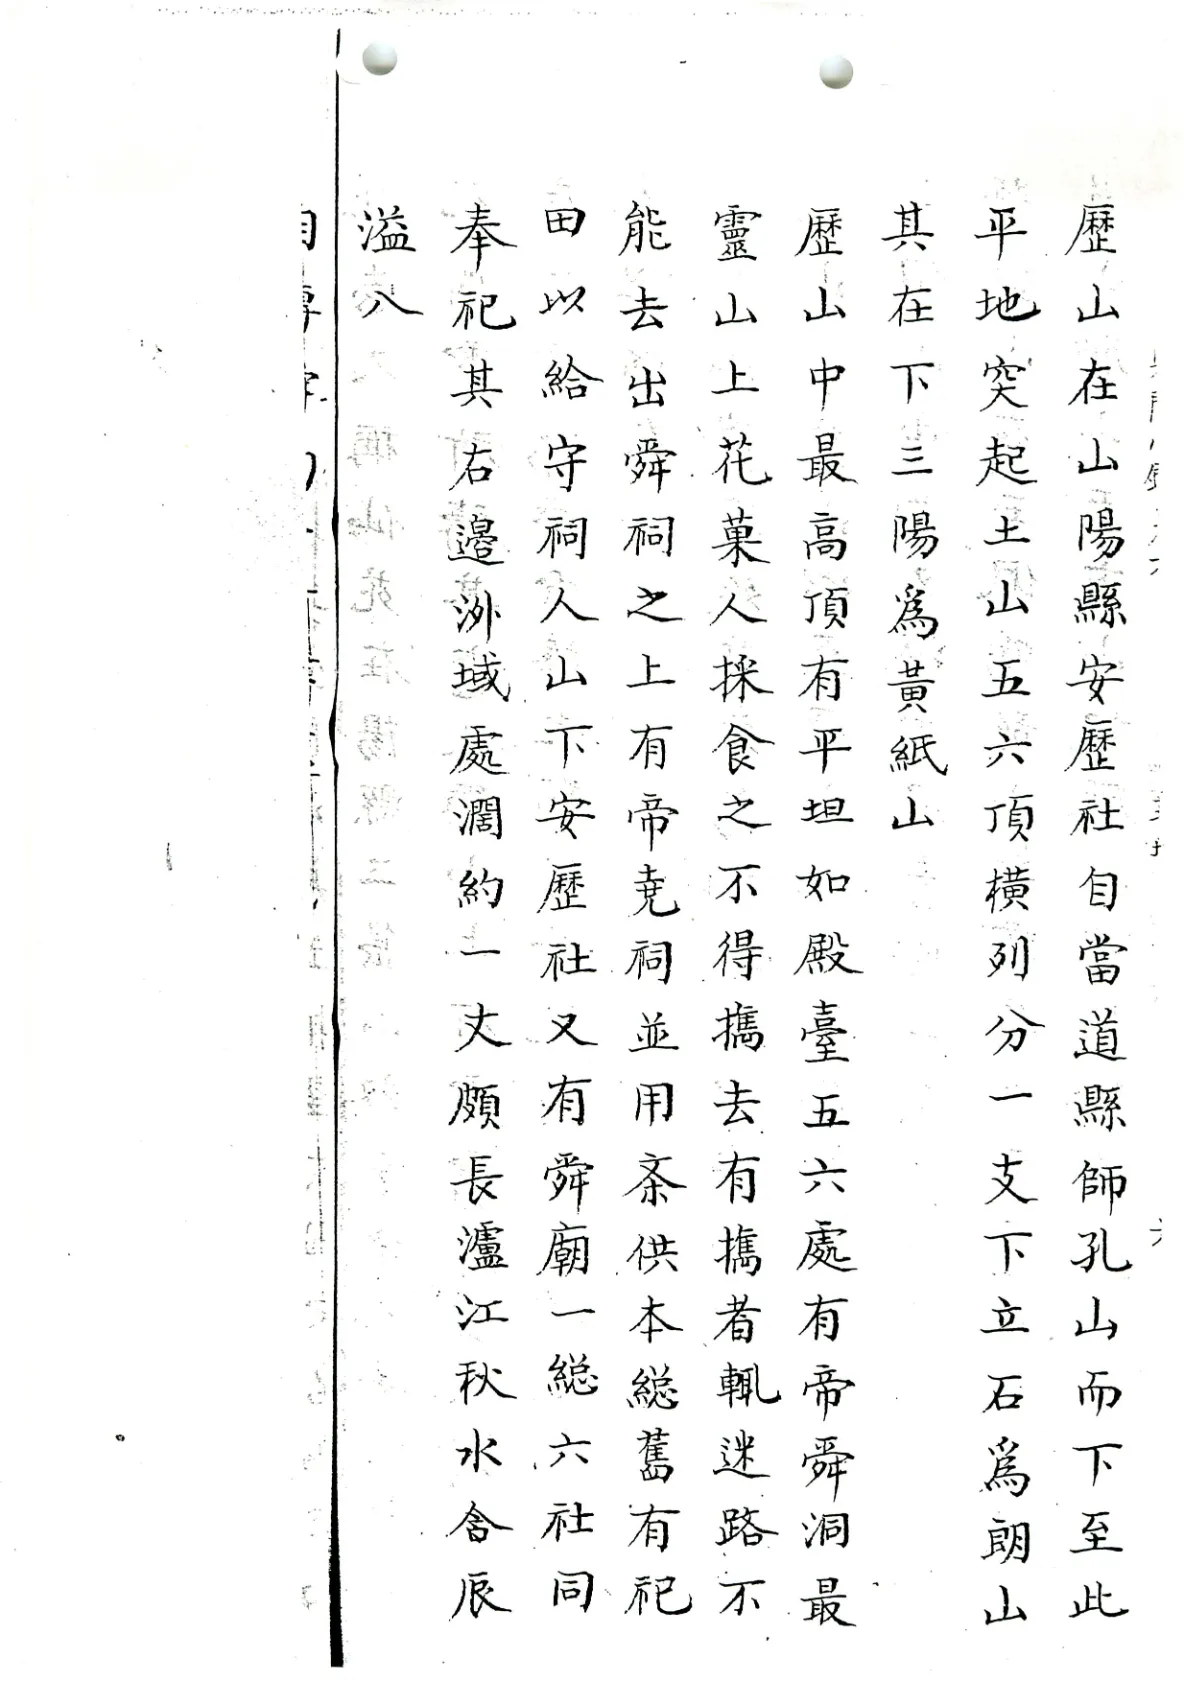 歷山在山陽縣安歷社自當道縣師孔山而下至此
平地突起土山五六頂橫列分一支下立石爲朗山
其在下三陽爲黃紙山
歷山中最高頂有平坦如殿臺五六處有帝舜洞最
靈山上花菓人採食之不得攜去有攜者輒迷路不
能去出舜祠之上有帝堯祠並用斋供本総舊有祀
田以給守祠人山下安歷社又有舜廟一総六社同
奉祀其右邉泑域處濶約一丈頗長瀘江秋水舍辰
溢入